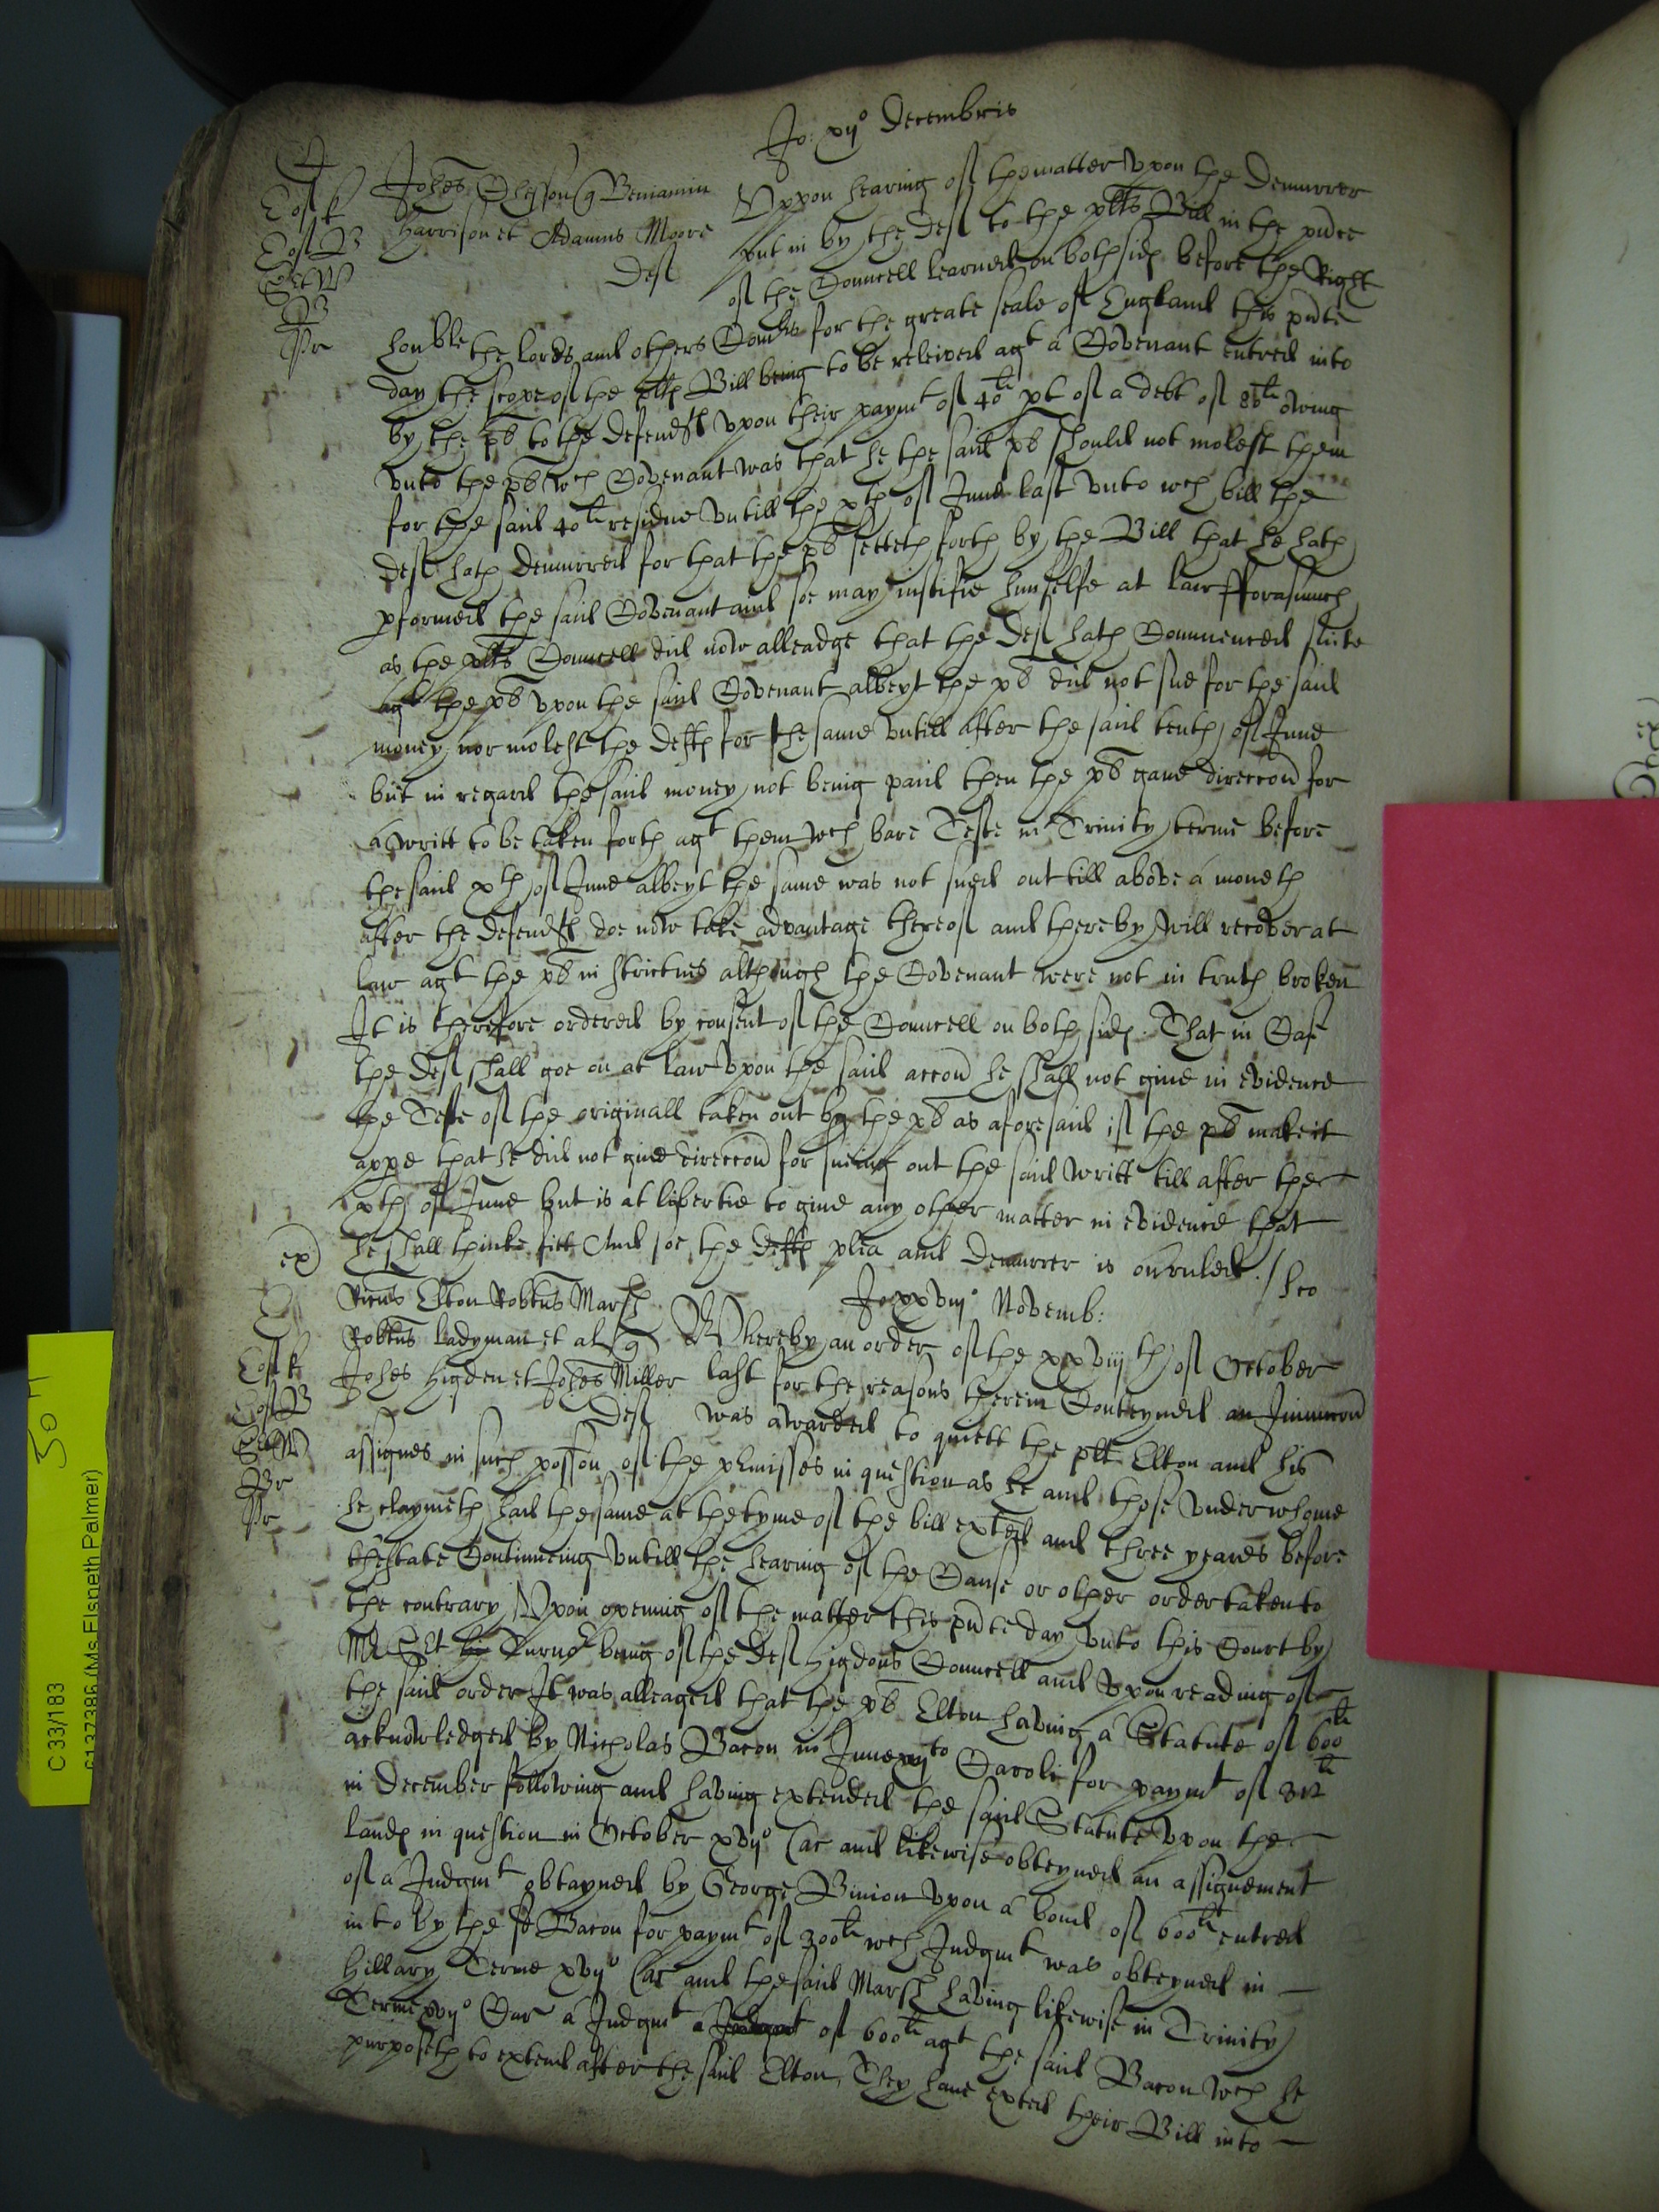 Jo: xijo Decembris
A
Cosk
CosB
SetW
B
Pr
Johes Chesson q Beniamin
Harrison et Adamus Moore
Def
Vppon hearing of the matter vpon the Demurrer
put in by the Def to the plts Bill in the pnce
of the Councell learned on both sides before the Right
honble the lords and others Comrs for the greate seale of England this pnte
day the scope of the plts Bill being to be releived agt a Covenant entred into
by the pt to the defendts vpon their paymt of 40li pt of a debt of 80li owing
vnto the pt wch Covenant was that he the said pt should not molest them
for the said 40li residue vntill the xth of June last vnto wch bill the
Def hath demurred for that the pt setteth forth by the Bill that he hath
pformed the said Covenant and soe may iustifie himselfe at law fforasmuch
as the plts Councell did now alleadge that the Def hath Commenced suite
agt the pt vpon the said Covenant albeyt the pt did not sue for the said
money nor molest the defts for the same vntill after the said tenth of June
but in regard the said money not being paid then the pt gaue direccon for
a writt to be taken forth agt them wch bare Teste in Trinity terme before
the said xth of June albeyt the same was not sued out till above a moneth
after the defendts doe now take advantage thereof and thereby will recover at
law agt the pt in strictnes although the Covenant were not in truth broken
It is therefore ordered by consent of the Councell on both sides. That in Case
the Def shall goe on at law vpon the said accon he shall not giue in evidence
the Teste of the originall taken out by the pt as aforesaid if the pt make it
appe that he did not giue direccon for sueing out the said writt till after the
xth of June but is at libertie to giue any other matter in evidence that
he shall thinke fitt And soe the defts plea and demurrer is ouruled ./
ex
Jo xxviijo Novemb:
Cosk
CosB
SetW
Br
Pr
Ricus Elton Robtus Marsh
Robtus Ladyman et al q
Johes Higden et Johes Miller
Def
Whereby an order of the xxviijth of October
last for the reasons therein Conteyned an Iniunccon
was awarded to quiett the plt Elton and his
assignes in such possion of the pmisses in question as he and those vnder whome
he claymeth had the same at the tyme of the bill exted and three yeares before
thestate Continueing vntill the hearing of the Cause or other order taken to
the contrary Vpon opening of the matter this pnte day vnto this Court by
Mr Sit Turnor being of the Def Higdons Councell and vpon reading of
the said order It was alleaged that the pt Elton having a Statute of 600li
acknowledged by Nicholas Bacon in June xvjto Caroli for paymt of 312li
in December following and having extended the said Statute vpon the
lands in question in October xvijo Car and likewise obteyned an assignement
of a Judgmt obtayned by George Binion vpon a bond of 600li entred
into by the sd Bacon for paymt of 300li wch Judgmt was obteyned in
Hillary Terme xvijo Car and the said Marsh having likewise in Trinity
Terme xvijo Car a Judgmt a Judgmt of 600li agt the said Bacon wch he
purposeth to extend after the said Elton, They haue exted their Bill into
30
C 33/183
6137386 (Ms Elspeth Palmer)